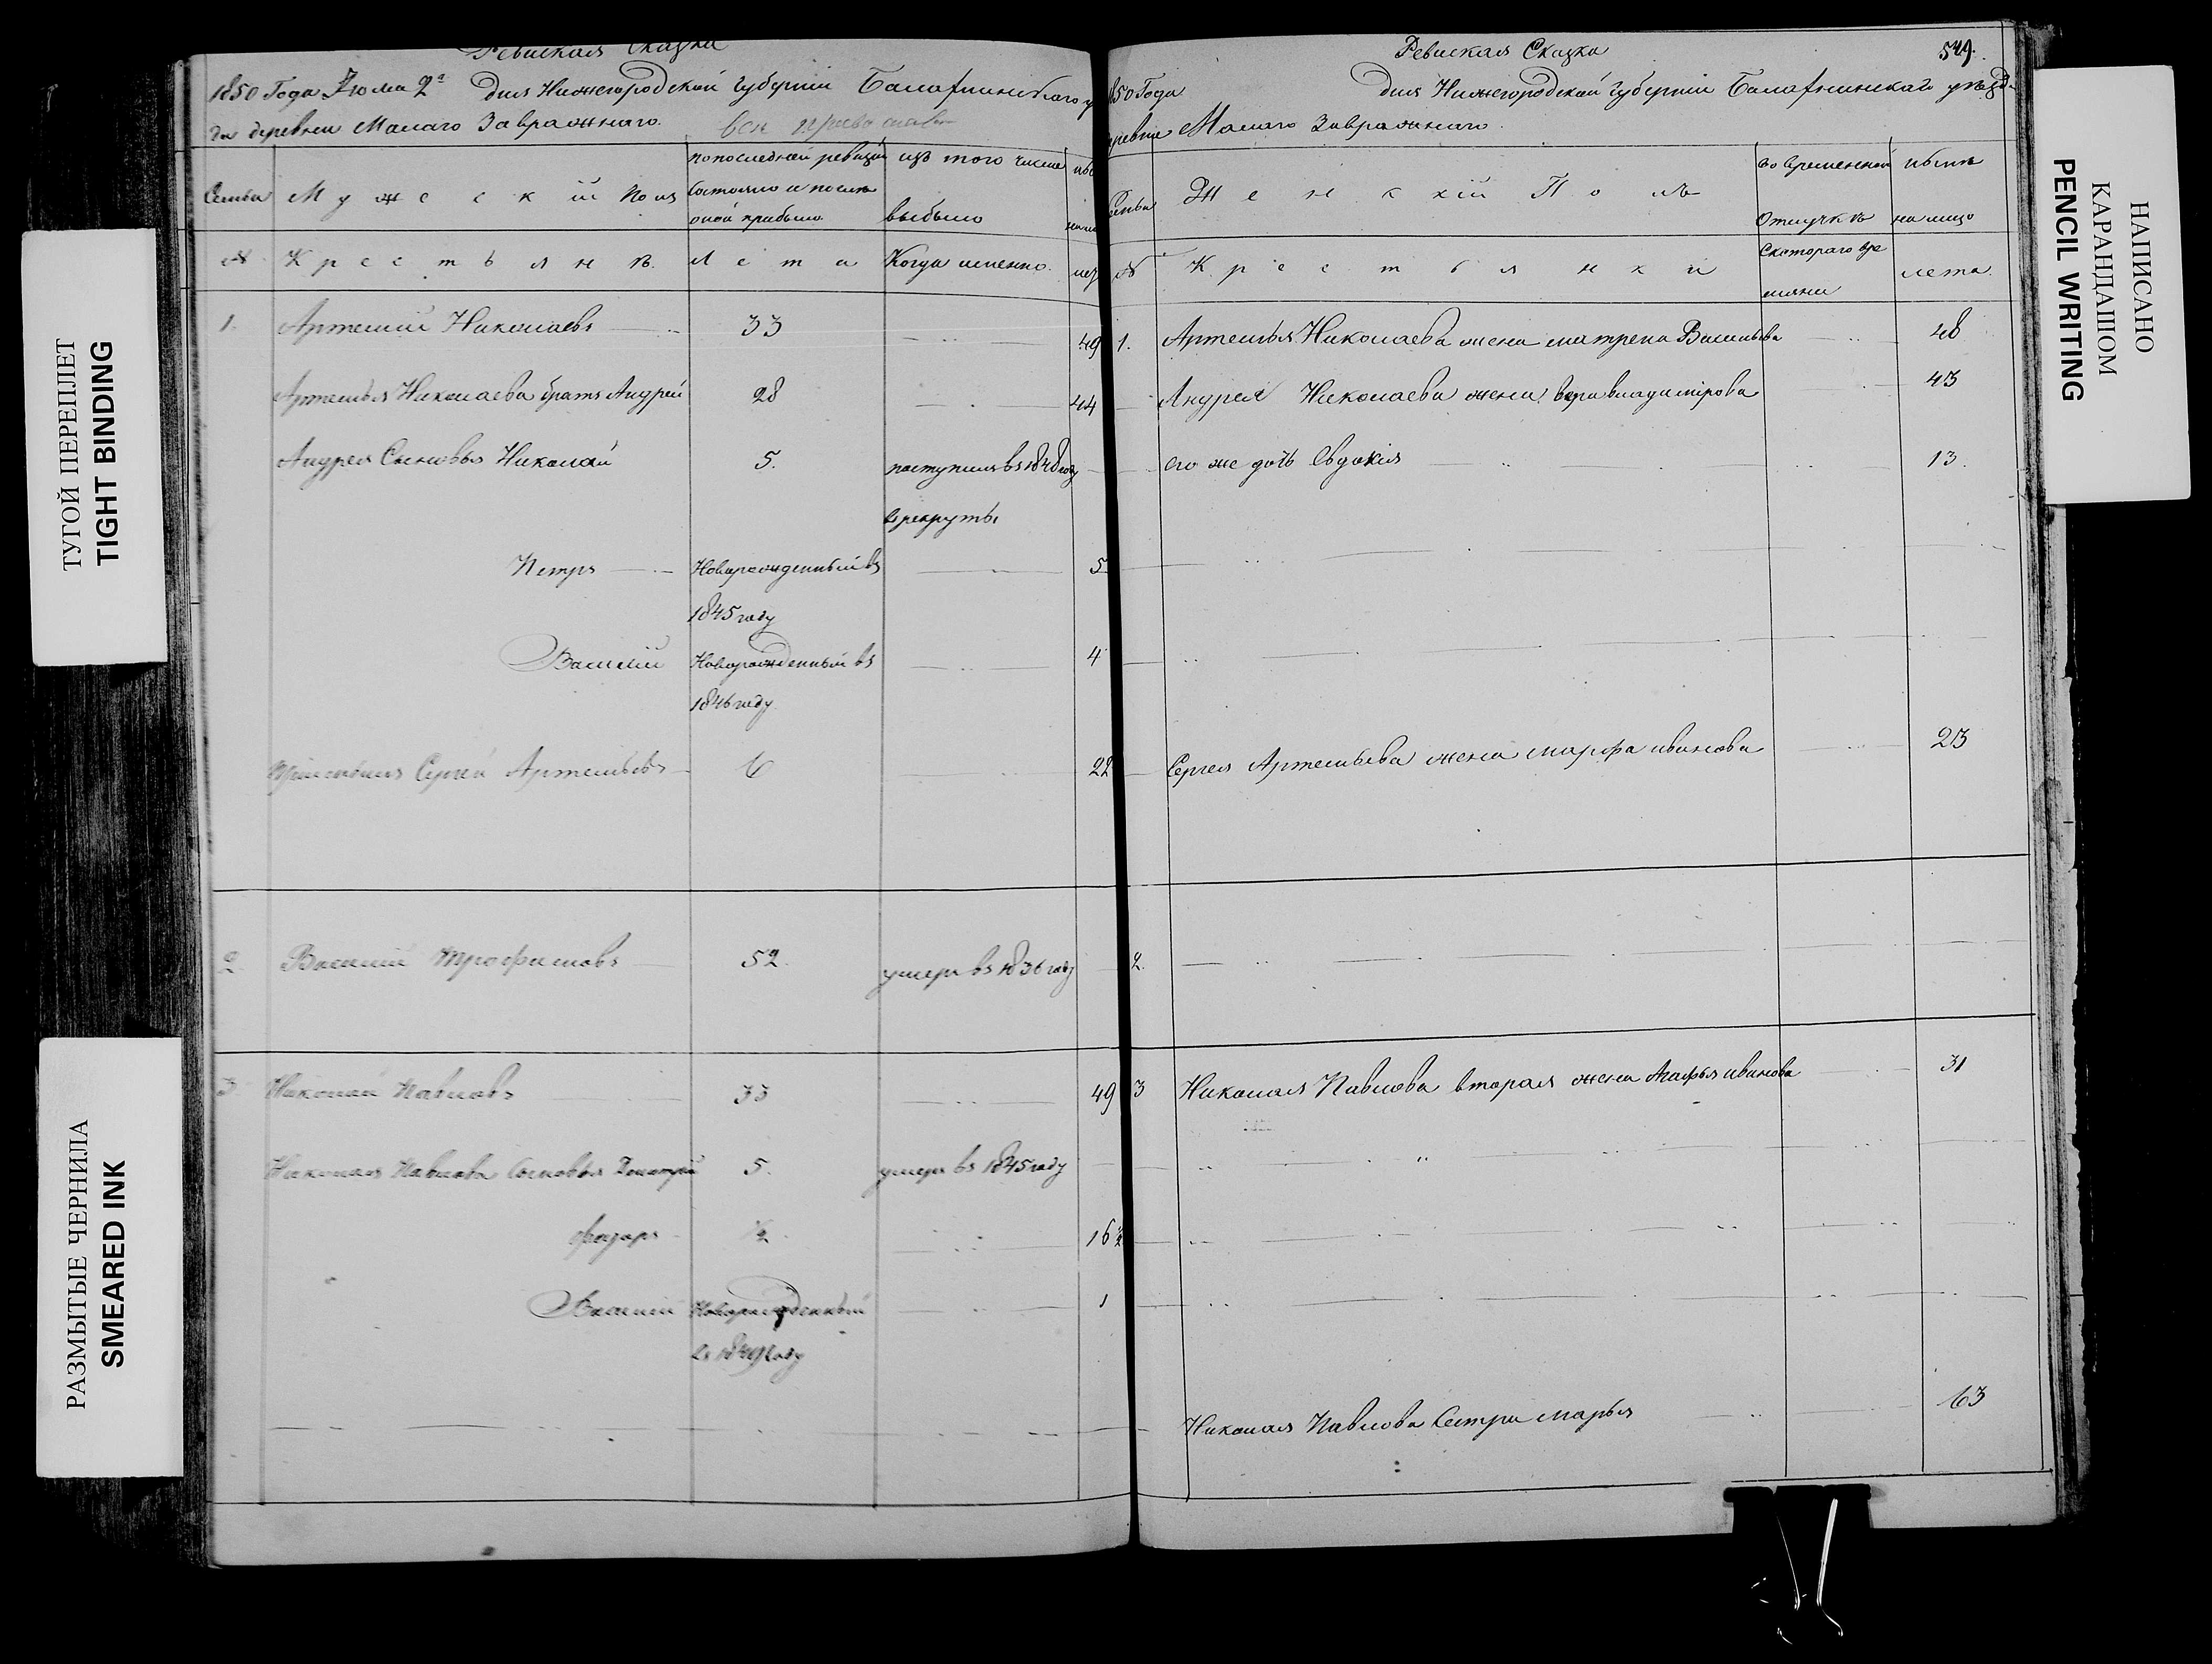 ТУГОЙ ПЕРЕПЛЕТ
TIGHT BINDING
РАЗМЫТЫЕ ЧЕРНИЛА
SMEARED INK
Ревиская Сказка
1850 Года Июля 2го Дня Нижегородской Губернии Балахнинскаго у
да деревни Малаго Завражнаго.
все
Семьи
Мужеский пол
по последней ревизии
состояло и после
оной прибыло
изъ того числа
выбыло
№
Крестьянъ.
Лета
Когда именно.
1. Артемий Николаевъ 33 49
Артемья Николаева братъ Андрей 28 44
Андрея Сыновья Николай 5. поступилъ въ 1848 году
в рекруты
Петръ Новорожденный въ 5
1845 году
Василий Новорожденный въ 4
1846 году
Сергей Артемьевъ 6 22
2. Василий Трофимовъ 52. умеръ въ 1836 году
3 Николай Павловъ 33 49
Николая Павлова Сыновья Дмитрий 5. умеръ въ 1845 году
½ 16 ½
Василий Новорожденный 1
въ 1849 году
Ревиская Сказка
549.
850 Года Дня Нижегородской Губернии Балахнинскаго уезда
деревни Малаго Завражнаго.
Семьи
Женский Полъ
во временной
Отлучкѣ
ныне
на лицо
№
Крестьянки
Скотораго вре
мяни
лета.
1. Артемья Николаева жена матрена Васильева 48
Андрея Николаева жена вера владимирова 43
его же дочь Евдокия 13.
Сергея Артемьева жена марфа иванова 23
2.
3 Николая Павлова вторая жена Агафья иванова 31
Николая Павлова Сестра марья 63
НАПИСАНО
КАРАНДАШОМ
PENCIL WRITING